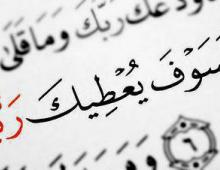 وَدَّعَكَ رَبُّكَ وَمَا قَلَىٰ
سَوْفَ يُعْطِيكَ
٦